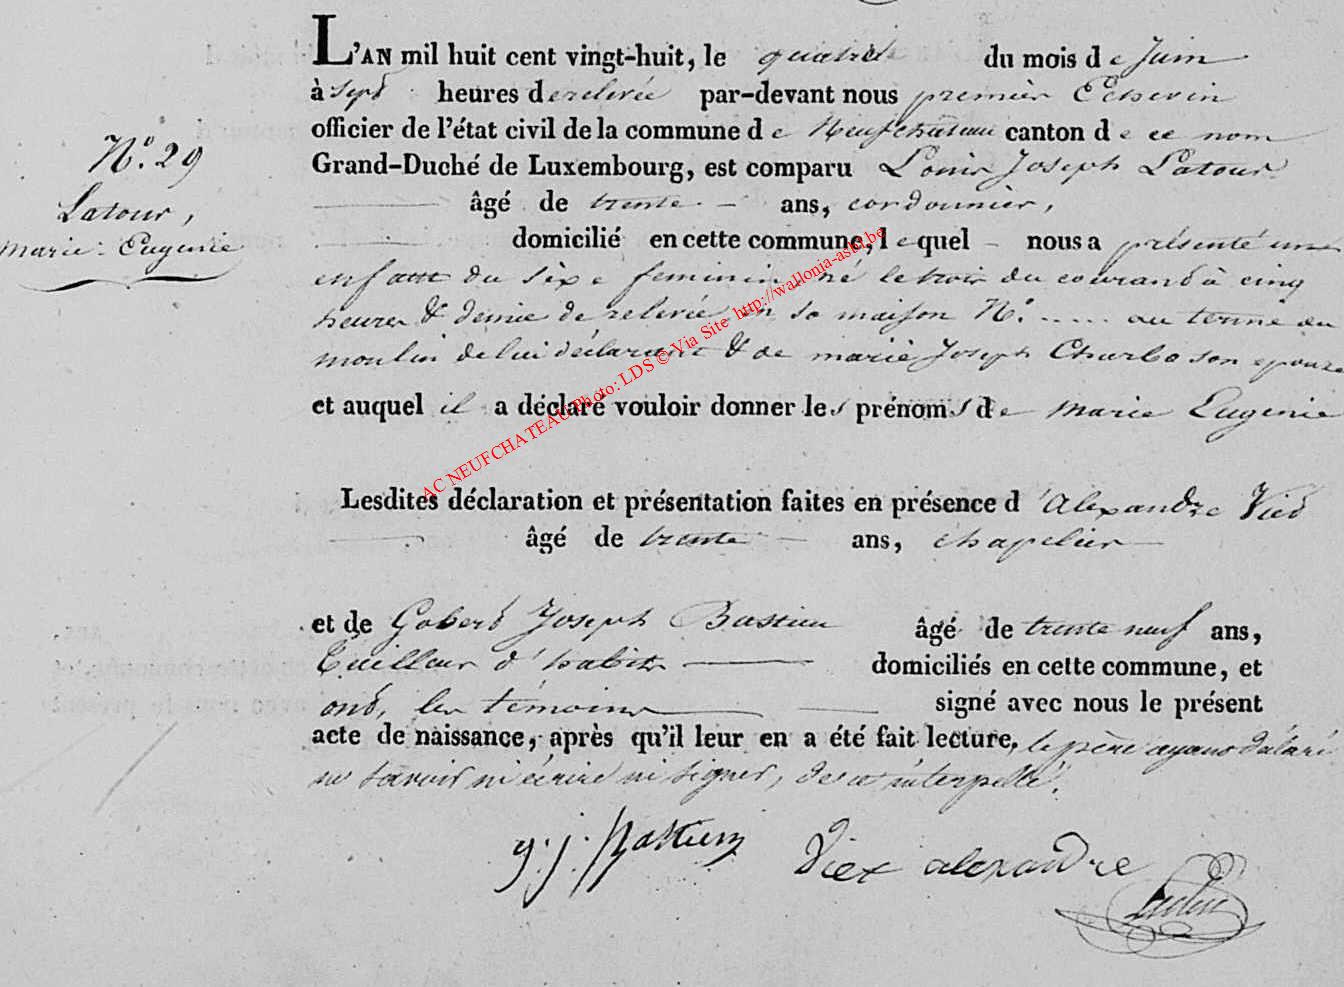 L'AN mil huit cent vingt-huit, le quatre du mois de Juin
à sept heures de relevée par-devant nous premier Echevin
officier de l'état civil de la commune de Neufchâteau canton de ce nom
Grand-Duché de Luxembourg, est comparu Louis Joseph Latour
âgé de trente ans, cordonnier,
domicilié en cette commune, lequel nous a présenté une
enfant du sexe feminin né le trois du courant à cinq
heures & demie de relevée en sa maison N°. ..... au terme du
moulin de lui déclarant & de marie Joseph Charlo son epouse
et auquel il a déclaré vouloir donner les prénoms de Marie Eugenie
N°. 29
Latour,
Marie-Eugenie
Lesdites déclaration et présentation faites en présence d'Alexandre Viet
âgé de trente ans, chapelier
et de Gobert Joseph Bastien âgé de trente neuf ans,
Tailleur d'habits domiciliés en cette commune, et
ont, les témoins signé avec nous le présent
acte de naissance, après qu'il leur en a été fait lecture, le père ayant déclaré
ne savoir ni écrire ni signer, de ce interpellé.
g. j. Bastien Viet alexandre
AC NEUFCHATEAU Photo: LDS © Via Site http://wallonia-asbl.be